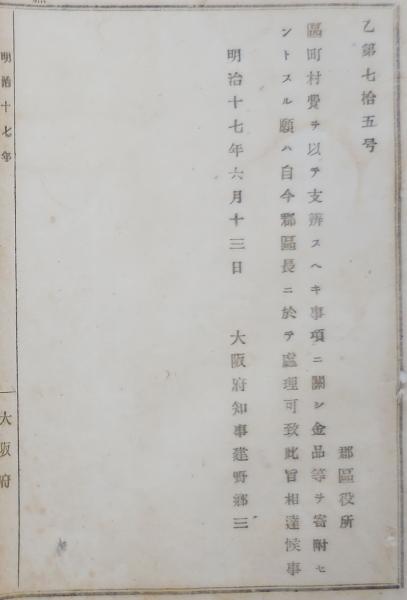 乙第七拾五号
郡區役所
區町村費ヲ以テ支辨スヘキ事項ニ關シ金品等ヲ寄附セ
ントスル願ハ自今郡區長ニ於テ處理可致此旨相達候事
明治十七年六月十三日
大阪府知事建野郷三
明治十七年
大阪府